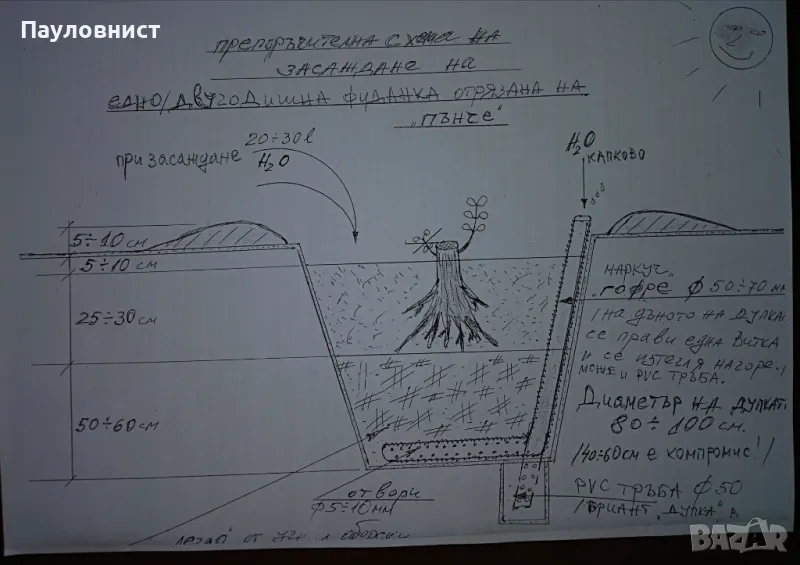 Пауловнист
ПРЕПОРЪЧИТЕЛНА СХЕМА НА
ЗАСАЖДАНЕ НА
ЕДНО/ДВУГОДИШНА ФИДАНКА ОТРЯЗАНА НА
"ПЪНЧЕ"
20÷30 l
при засаждане H₂O
H₂O
КАПКОВО
5÷10 см
5÷10 см
25÷30 см
50÷60 см
МАРКУЧ
"ГОФРЕ" ф 50÷70 мм
/НА ДЪНОТО НА ДУПКАТА
СЕ ПРАВИ ЕДНА ВИТКА
И СЕ ИЗТЕГЛЯ НАГОРЕ./
МОЖЕ И PVC ТРЪБА.
ДИАМЕТЪР НА ДУПКАТА
80÷100 см.
/40÷60 см Е КОМПРОМИС!/
отвори
ф5÷10 мм
PVC ТРЪБА ф50
/ВАРИАНТ "ДУПКА" В
от
BAZAR
bg